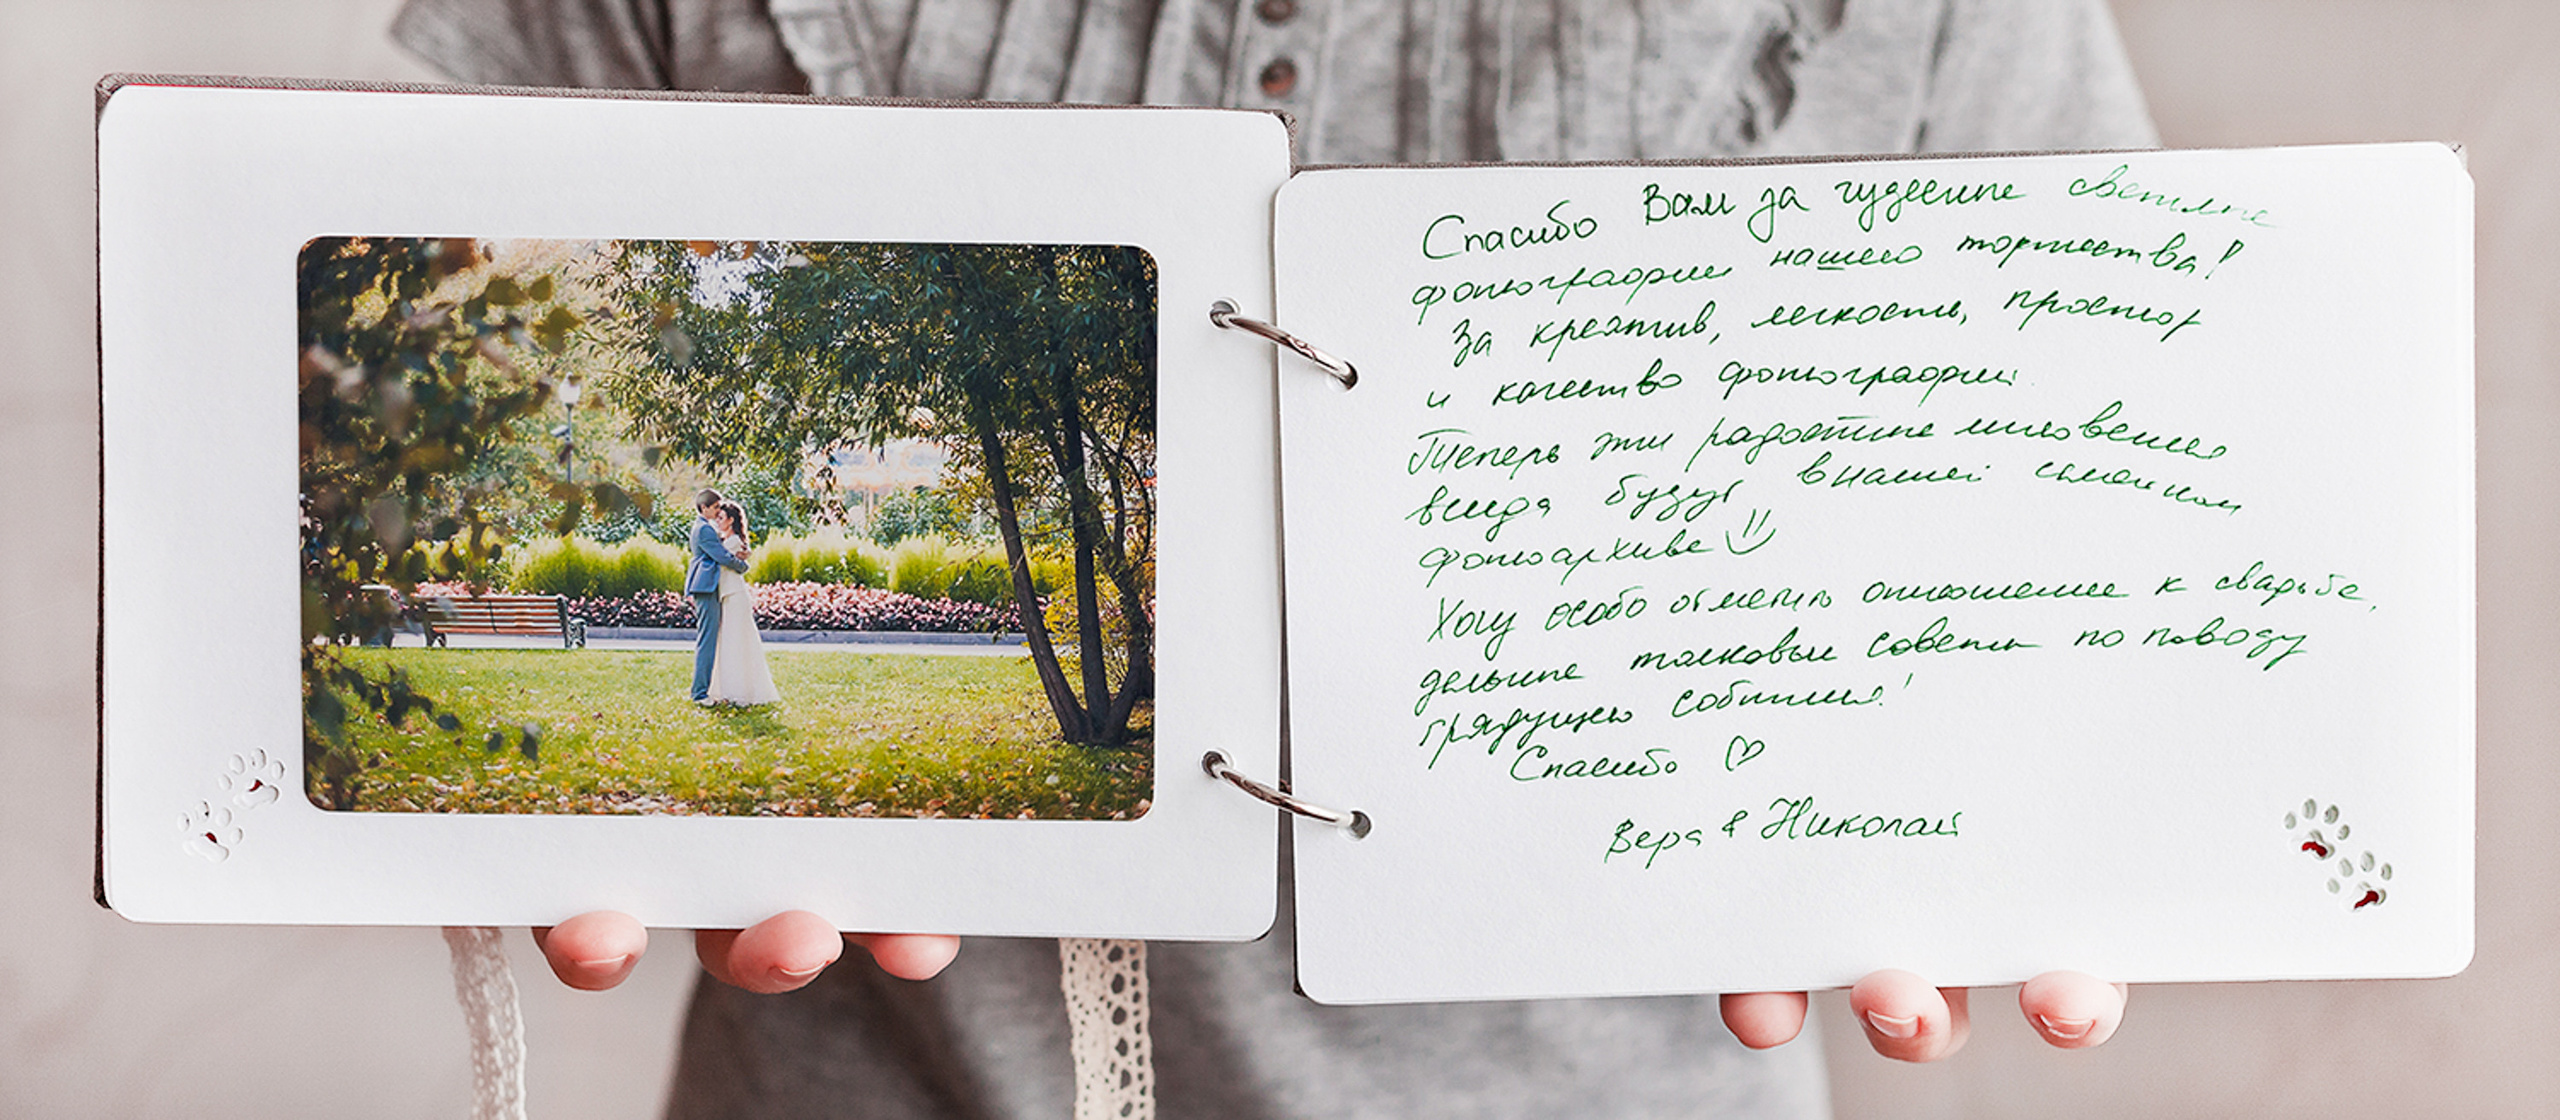 Спасибо Вам за чудесные светлые
фотографии нашего торжества!
За креатив, легкость, простор
и качество фотографий.
Теперь эти радостные мгновения
всегда будут в нашем семейном
фотоархиве
Хочу особо отметить отношение к свадьбе,
дельные толковые советы по поводу
грядущего события!
Спасибо ♡
Вера & Николай